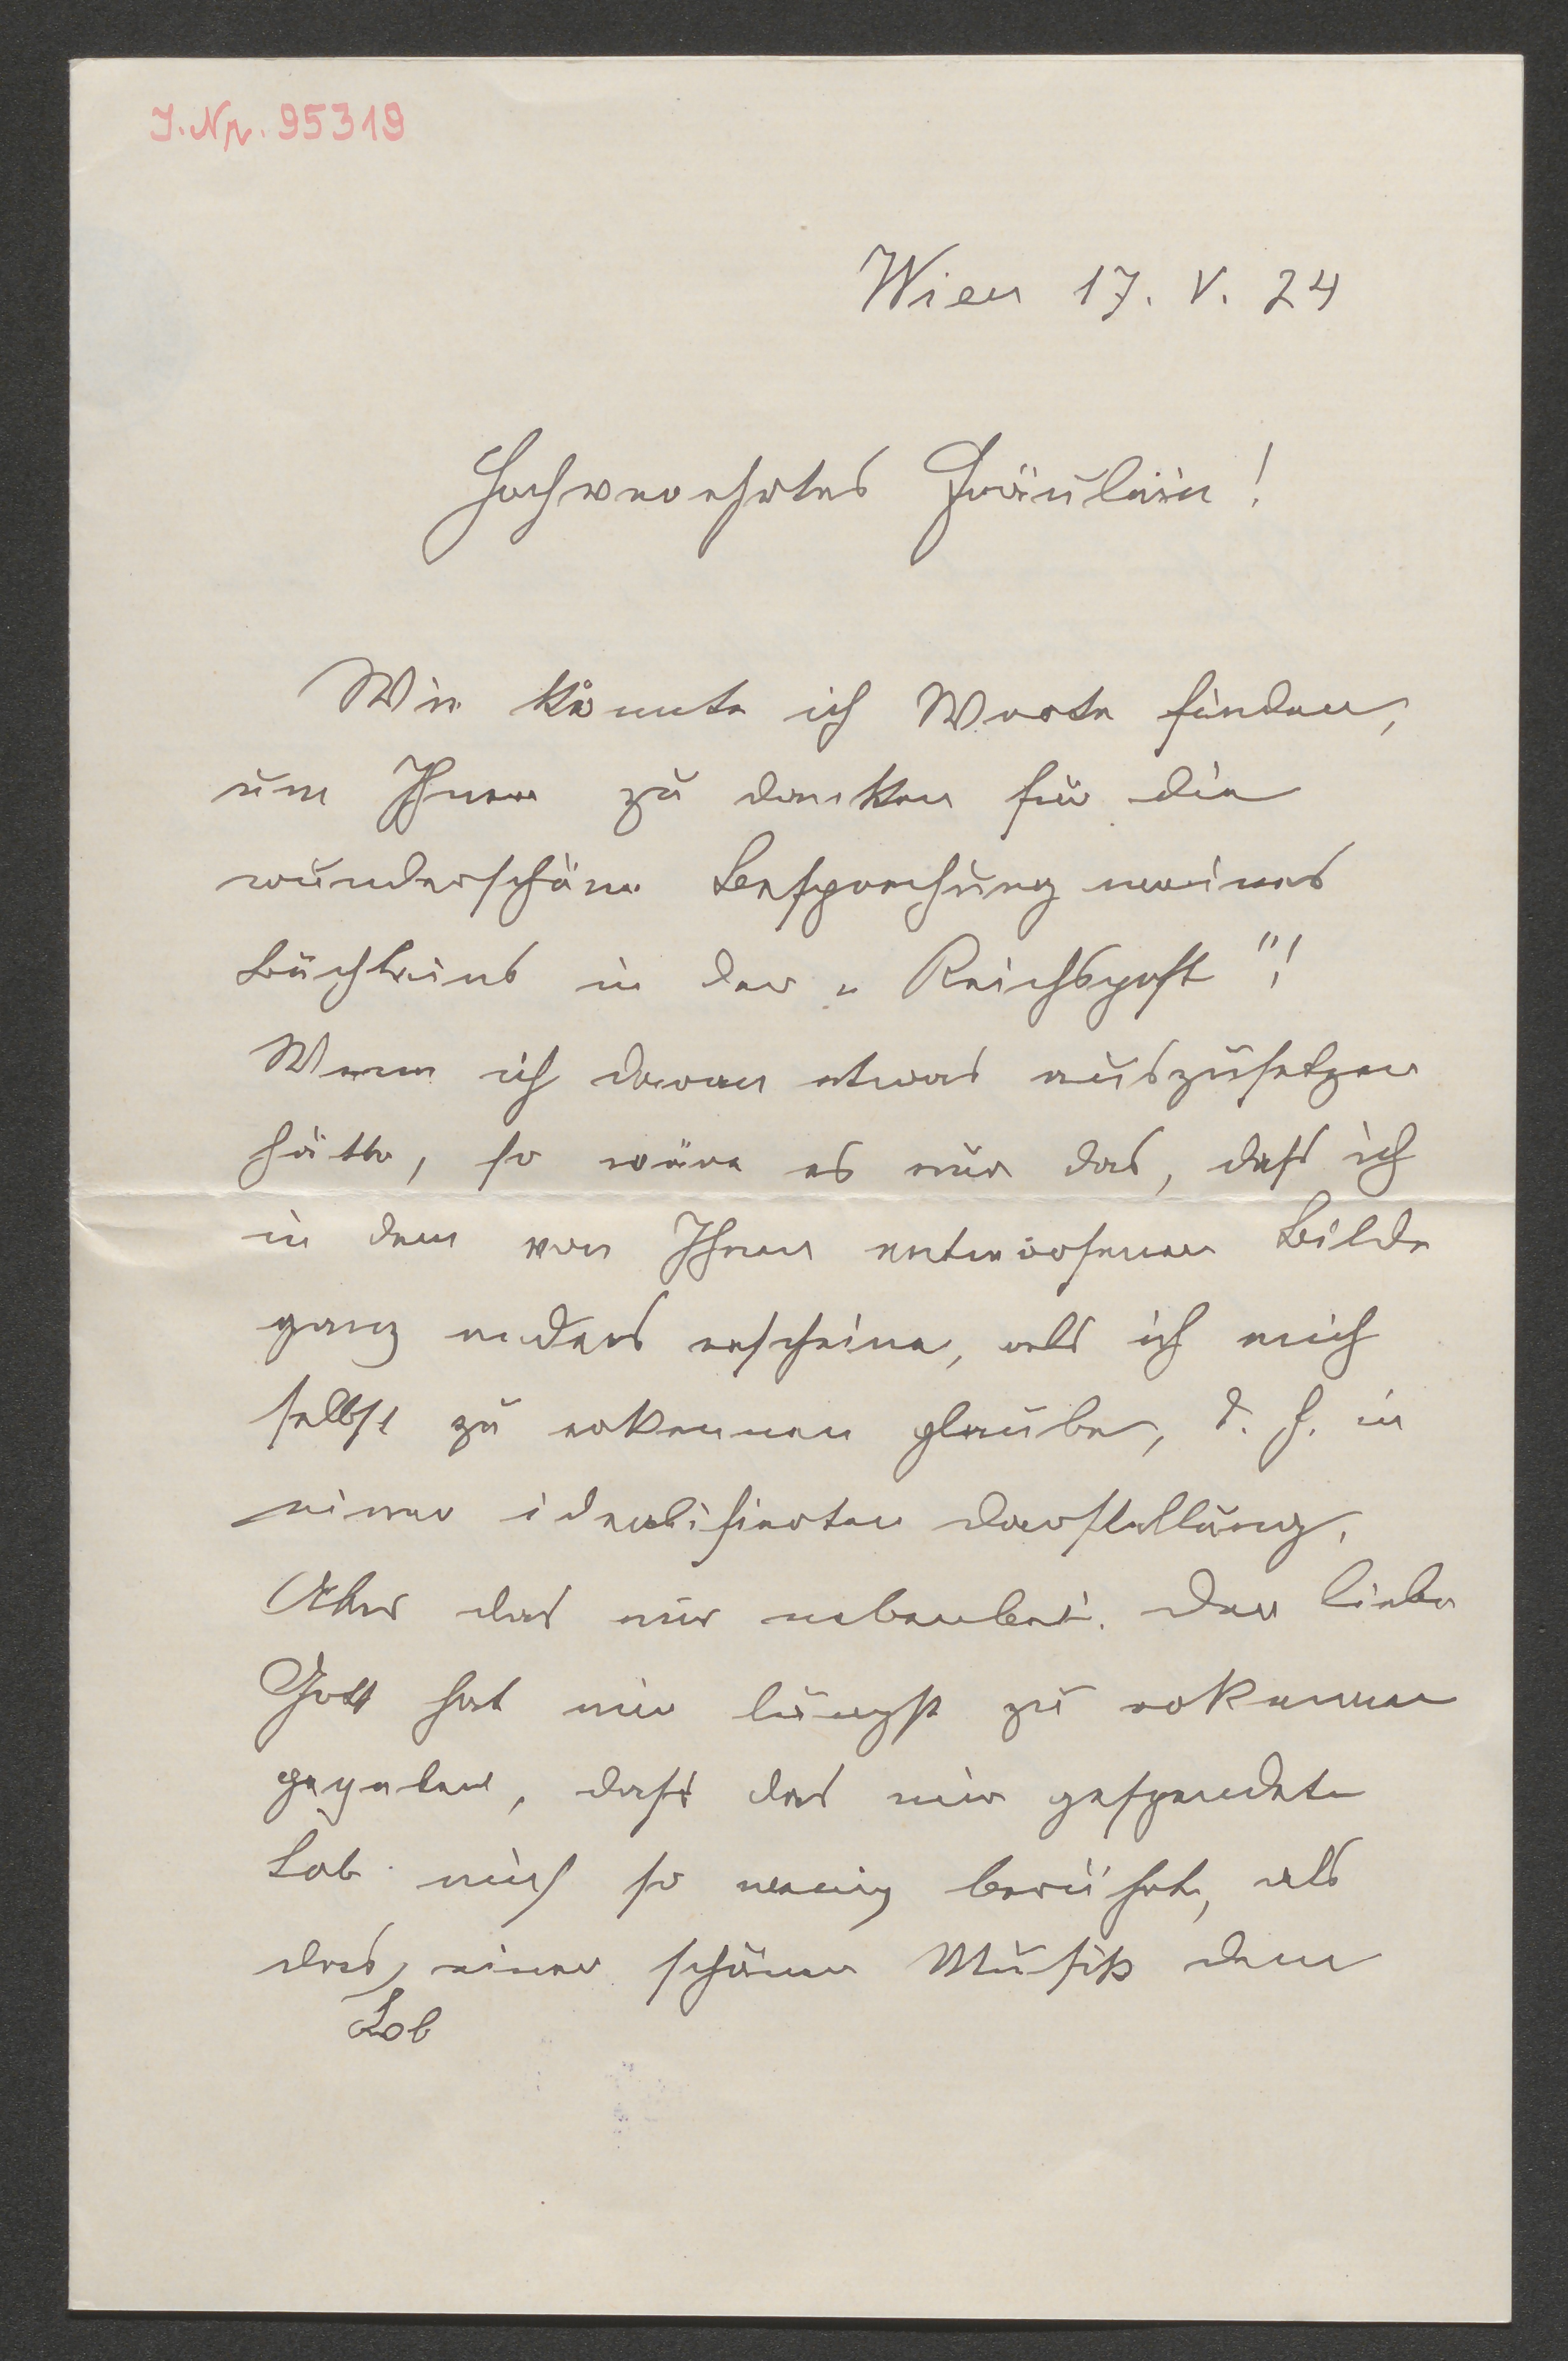 J. Nr. 95319
Wien 17. V. 24
Hochverehrtes Fräulein!
Wie könnte ich Worte finden,
um Ihnen zu danken für die
wunderschöne Besprechung meines
Büchleins in der „Reichspost"!
Wenn ich daran etwas auszusetzen
hätte, so wäre es nur das, dass ich
in dem von Ihnen entworfenen Bilde
ganz anders erscheine, als ich mich
selbst zu erkennen glaube, d. h. in
einer idealisierten Darstellung.
Aber das nur nebenbei. Der liebe
Gott hat mir längst zu erkennen
gegeben, dass das mir gespendete
Lob mich so wenig berührt, als
das einer schönen Musik dem
Lob